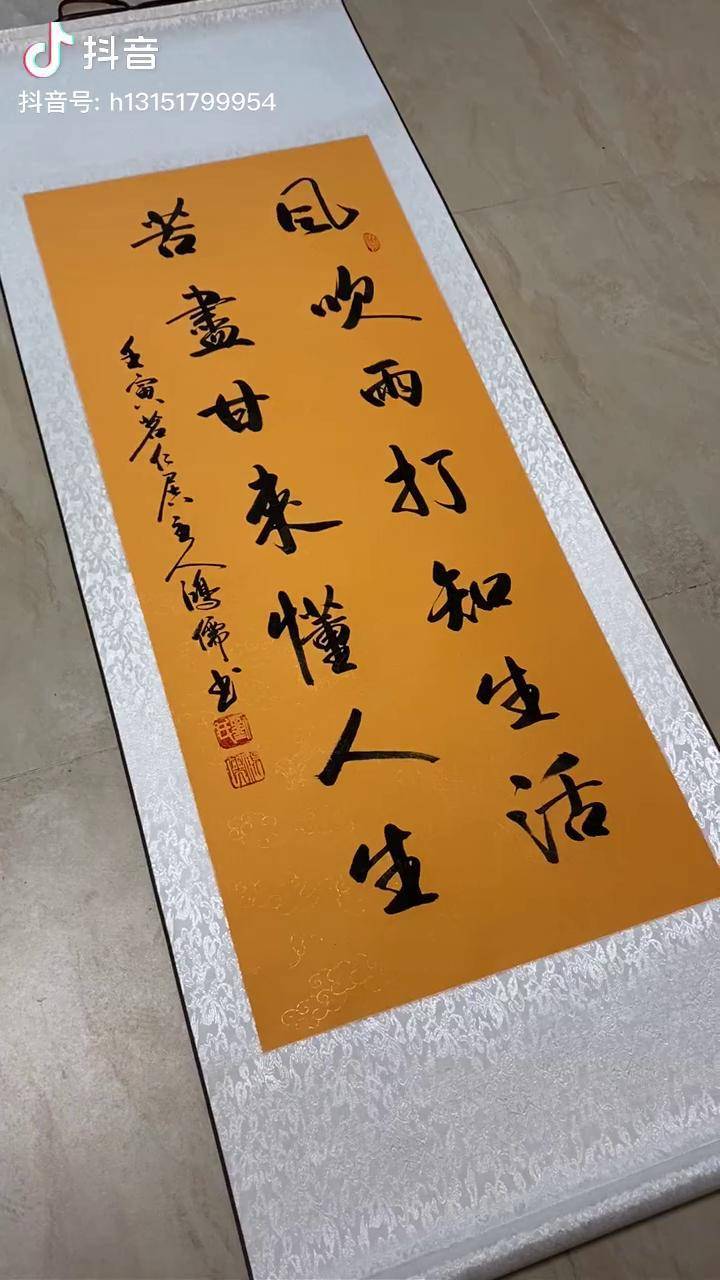 抖音
抖音号: h13151799954
风吹雨打知生活
苦盡甘來懂人生
壬寅茗仁居主人鴻儒书